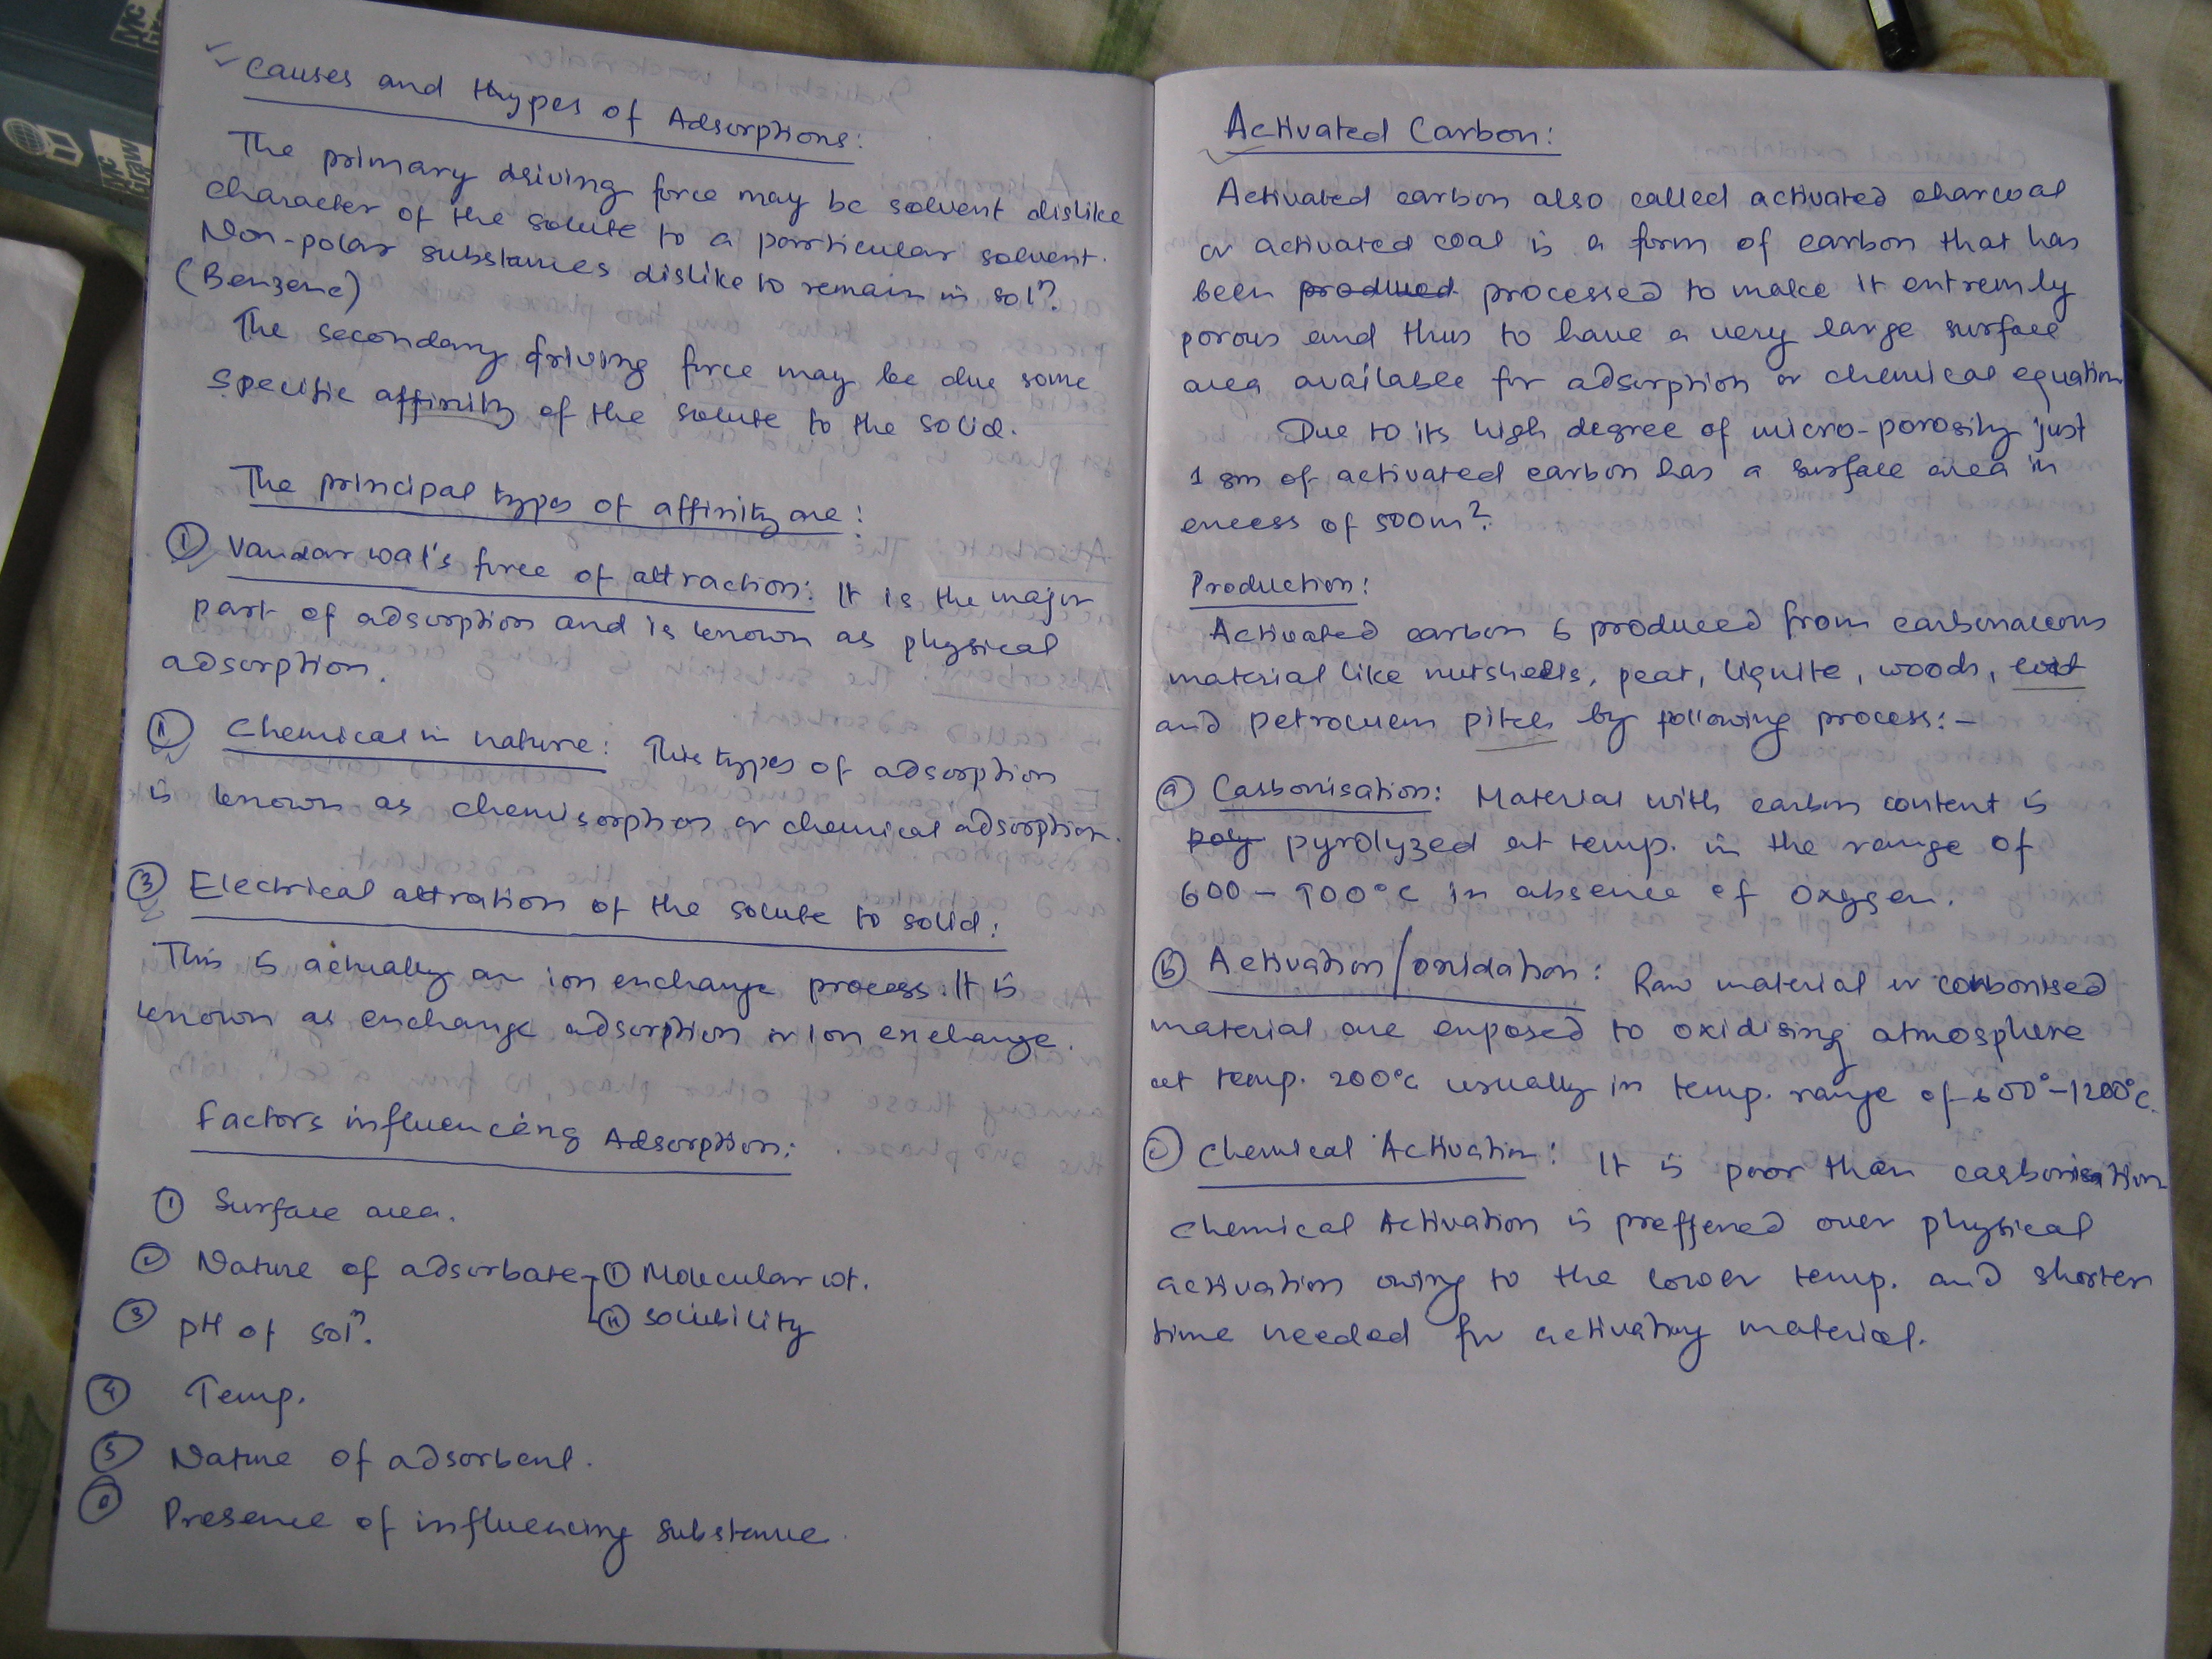 Causes and thypes of Adsorptions:
The primary driving force may be solvent dislike
character of the solute to a particular solvent.
Non-polar substances dislike to remain in solⁿ.
(Benzene)
The secondary driving force may be due some
specific affinity of the solute to the solid.
The principal types of affinity are:
① Vandar wal's force of attraction: It is the major
part of adsorption and is known as physical
adsorption.
② Chemical in nature: This types of adsorption
is known as chemisorption or chemical adsorption.
③ Electrical attration of the solute to solid:
This is actually an ion exchange process. It is
known as exchange adsorption or Ion exchange.
Factors influenceing Adsorption:
① Surface area.
② Nature of adsorbate ① Molecular wt.
ⓘⓘ solubility
③ pH of solⁿ.
④ Temp.
⑤ Nature of adsorbent.
⑥ Presence of influencing substance.
Activated Carbon:
Activated carbon also called activated charcoal
or activated coal is a form of carbon that has
been produced processed to make it extremly
porous and thus to have a very large surface
area available for adsorption or chemical equation
Due to its high degree of micro-porosity just
1 gm of activated carbon has a surface area in
excess of 500m².
Production:
Activated carbon is produced from carbonaceous
material like nutshells, peat, lignite, woods,
and petroleum pitch by following process:-
ⓐ Carbonisation: Material with carbon content is
poly pyrolyzed at temp. in the range of
600-900°C in absence of oxygen.
ⓑ Activation/oxidation: Raw material or carbonised
material are exposed to oxidising atmosphere
at temp. 200°C usually in temp. range of 600°-1200°C.
ⓒ Chemical Activation: It is poor than carbonisation
chemical Activation is preffered over physical
activation owing to the lower temp. and shorter
time needed for activating material.
Mc
Graw